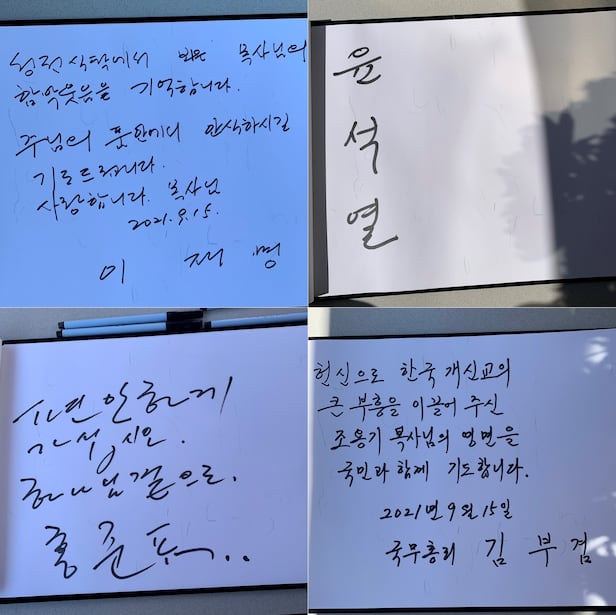 식탁에서 뵈온 목사님의
함박웃음을 기억합니다.
주님의 품안에서 안식하시길
기도드립니다.
사랑합니다. 목사님
2021.9.15.
이 재 명
윤
석
열
편안하게
가십시오.
하나님곁으로.
홍준표..
헌신으로 한국 개신교의
큰 부흥을 이끌어 주신
조용기 목사님의 영면을
국민과 함께 기도합니다.
2021년 9월 15일
국무총리 김 부 겸